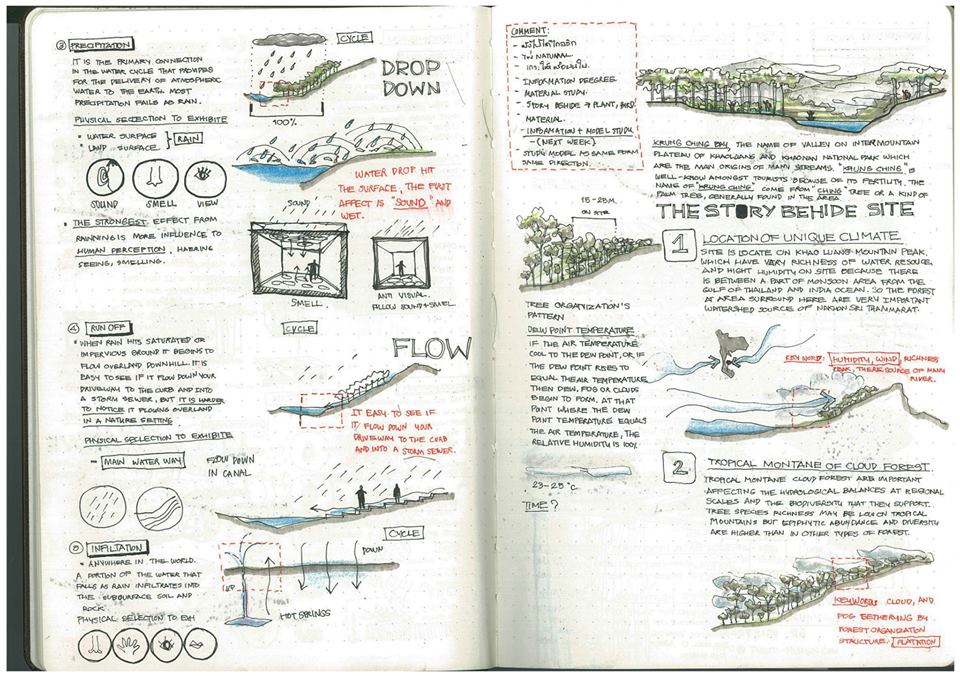 ③ PRECIPITATION
IT IS THE PRIMARY CONNECTION
IN THE WATER CYCLE THAT PROVIDES
FOR THE DELIVERY OF ATMOSPHERIC
WATER TO THE EARTH. MOST
PRECIPITATION FALLS AS RAIN.
PHYSICAL SELECTION TO EXHIBITE
• WATER SURFACE
• LAND SURFACE
RAIN
SOUND SMELL VIEW
• THE STRONGEST EFFECT FROM
RAINNING IS MORE INFLUENCE TO
HUMAN PERCEPTION, HEARING
SEEING, SMELLING.
CYCLE
100%
DROP
DOWN
WATER DROP HIT
THE SURFACE, THE FIRST
AFFECT IS "SOUND" AND
WET.
SOUND
SMELL
ANTI VISUAL.
FOLLOW SOUND+SMELL
④ RUN OFF
• WHEN RAIN HITS SATURATED OR
IMPERVIOUS GROUND IT BEGINS TO
FLOW OVERLAND DOWNHILL. IT IS
EASY TO SEE IF IT FLOW DOWN YOUR
DRIVEWAY TO THE CURB AND INTO
A STORM SEWER, BUT IT IS HARDER
TO NOTICE IT FLOWING OVERLAND
IN A NATURE SETTING
PHYSICAL SELECTION TO EXHIBITE
- MAIN WATER WAY
FLOW DOWN
IN CANAL
CYCLE
FLOW
IT EASY TO SEE IF
IT FLOW DOWN YOUR
DRIVEWAY TO THE CURB
AND INTO A STORM SEWER.
⑤ INFILTATION
• ANYWHERE IN THE WORLD.
A PORTION OF THE WATER THAT
FALLS AS RAIN INFILTRATES INTO
THE SUBSURFACE SOIL AND
ROCK.
PHYSICAL SELECTION TO EXH
CYCLE
DOWN
UP
HOT SPRINGS
COMMENT:
- NATURAL.
- INFORMATION DEGREE
- MATERIAL STUDY.
- STORY BEHIDE → PLANT, BIRD
MATERIAL.
- INFOMATION + MODEL STUDY
- (NEXT WEEK)
STUDY MODEL AS SAME FORM
SAME DIRECTION.
KRUNG CHING BAY, THE NAME OF VALLEY ON INTER MOUNTAIN
PLATEAU OF KHAOLUANG AND KHAONAN NATIONAL PARK WHICH
ARE THE MAIN ORIGINS OF MANY STREAMS. "KRUNG CHING" IS
WELL-KNOW AMONGST TOURISTS BECAUSE OF ITS FERTILITY. THE
NAME OF "KRUNG CHING" COME FROM "CHING" TREE OR A KIND OF
PALM TREE, GENERALLY FOUND IN THE AREA
THE STORY BEHIDE SITE
15-25M.
ON SITE
TREE ORGANIZATION'S
PATTERN
DEW POINT TEMPERATURE
IF THE AIR TEMPERATURE
COOL TO THE DEW POINT, OR IF
THE DEW POINT RISES TO
EQUAL THE AIR TEMPERATURE
THEN DEW, FOG OR CLOUDS
BEGIN TO FORM. AT THAT
POINT WHERE THE DEW
POINT TEMPERATURE EQUALS
THE AIR TEMPERATURE, THE
RELATIVE HUMIDITY IS 100%
23-25°C
TIME?
1
LOCATION OF UNIQUE CLIMATE
SITE IS LOCATE ON KHAO LUANG MOUNTAIN PEAK.
WHICH HAVE VERY RICHNESS OF WATER RESOUCE,
AND HIGHT HUMIDITY ON SITE BECAUSE THERE
IS BETWEEN A PART OF MONSOON AREA FROM THE
GULF OF THAILAND AND INDIA OCEAN. SO THE FOREST
AT AREA SURROUND HERE ARE VERY IMPORTANT
WATERSHED SOURCE OF NAKHON SRI THAMMARAT.
KEY WORD: HUMIDITY, WIND, RICHNESS
PEAK, THERE SOURCE OF MANY
RIVER.
2
TROPICAL MONTANE OF CLOUD FOREST.
TROPICAL MONTANE CLOUD FOREST ARE IMPORTANT
AFFECTING THE HYDROLOGICAL BALANCES AT REGIONAL
SCALES AND THE BIODIVERSITY THAT THEY SUPPORT.
TREE SPECIES RICHNESS MAY BE LOW ON TROPICAL
MOUNTAINS BUT EPIPHYTIC ABUNDANCE AND DIVERSITY
ARE HIGHER THAN IN OTHER TYPES OF FOREST.
KEYWORD: CLOUD, AND
FOG GETHERING BY
FOREST ORGANIZATION
STRUCTURE.